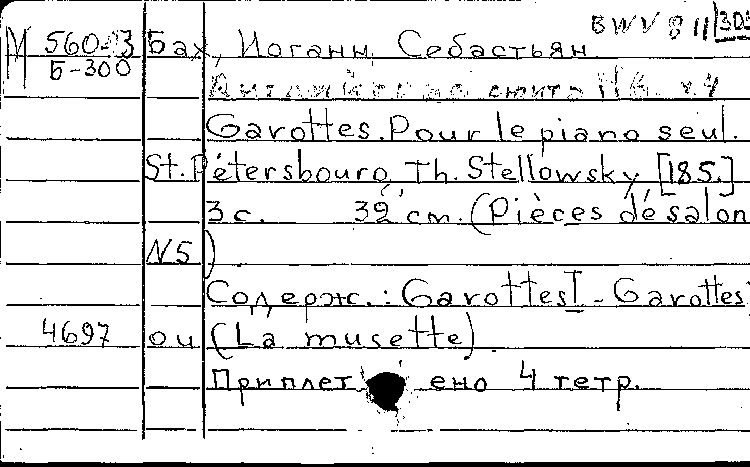 BWV 811
М 560-3 Бах, Иоганн Себастьян
Б-300
Английская сюита
Gavottes. Pour le piano seul.
St. Pétersbourg, Th. Stellowsky, [185.]
3 с. 32 cm. (Pièces de salon
N5)
Содерж.: Gavottes I - Gavottes
4697 ou (La musette).
Приплетено 4 тетр.